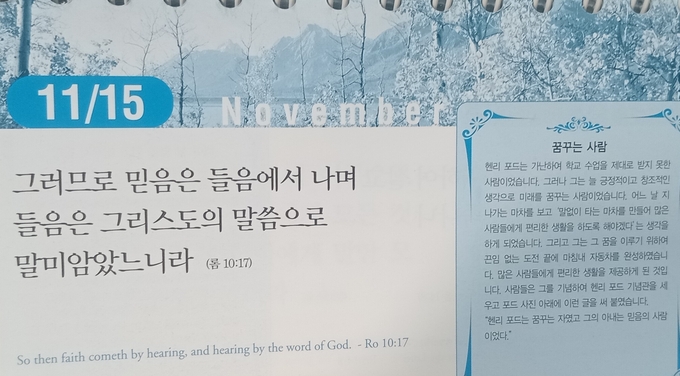 11/15
November
그러므로 믿음은 들음에서 나며
들음은 그리스도의 말씀으로
말미암았느니라 (롬 10:17)
So then faith cometh by hearing, and hearing by the word of God. - Ro 10:17
꿈꾸는 사람
헨리 포드는 가난하여 학교 수업을 제대로 받지 못한
사람이었습니다. 그러나 그는 늘 긍정적이고 창조적인
생각으로 미래를 꿈꾸는 사람이었습니다. 어느 날 지
나가는 마차를 보고 '말없이 타는 마차를 만들어 많은
사람들에게 편리한 생활을 하도록 해야겠다'는 생각을
하게 되었습니다. 그리고 그는 그 꿈을 이루기 위하여
끈임 없는 도전 끝에 마침내 자동차를 완성하였습니
다. 많은 사람들에게 편리한 생활을 제공하게 된 것입
니다. 사람들은 그를 기념하여 헨리 포드 기념관을 세
우고 포드 사진 아래에 이런 글을 써 붙였습니다.
"헨리 포드는 꿈꾸는 자였고 그의 아내는 믿음의 사람
이었다."